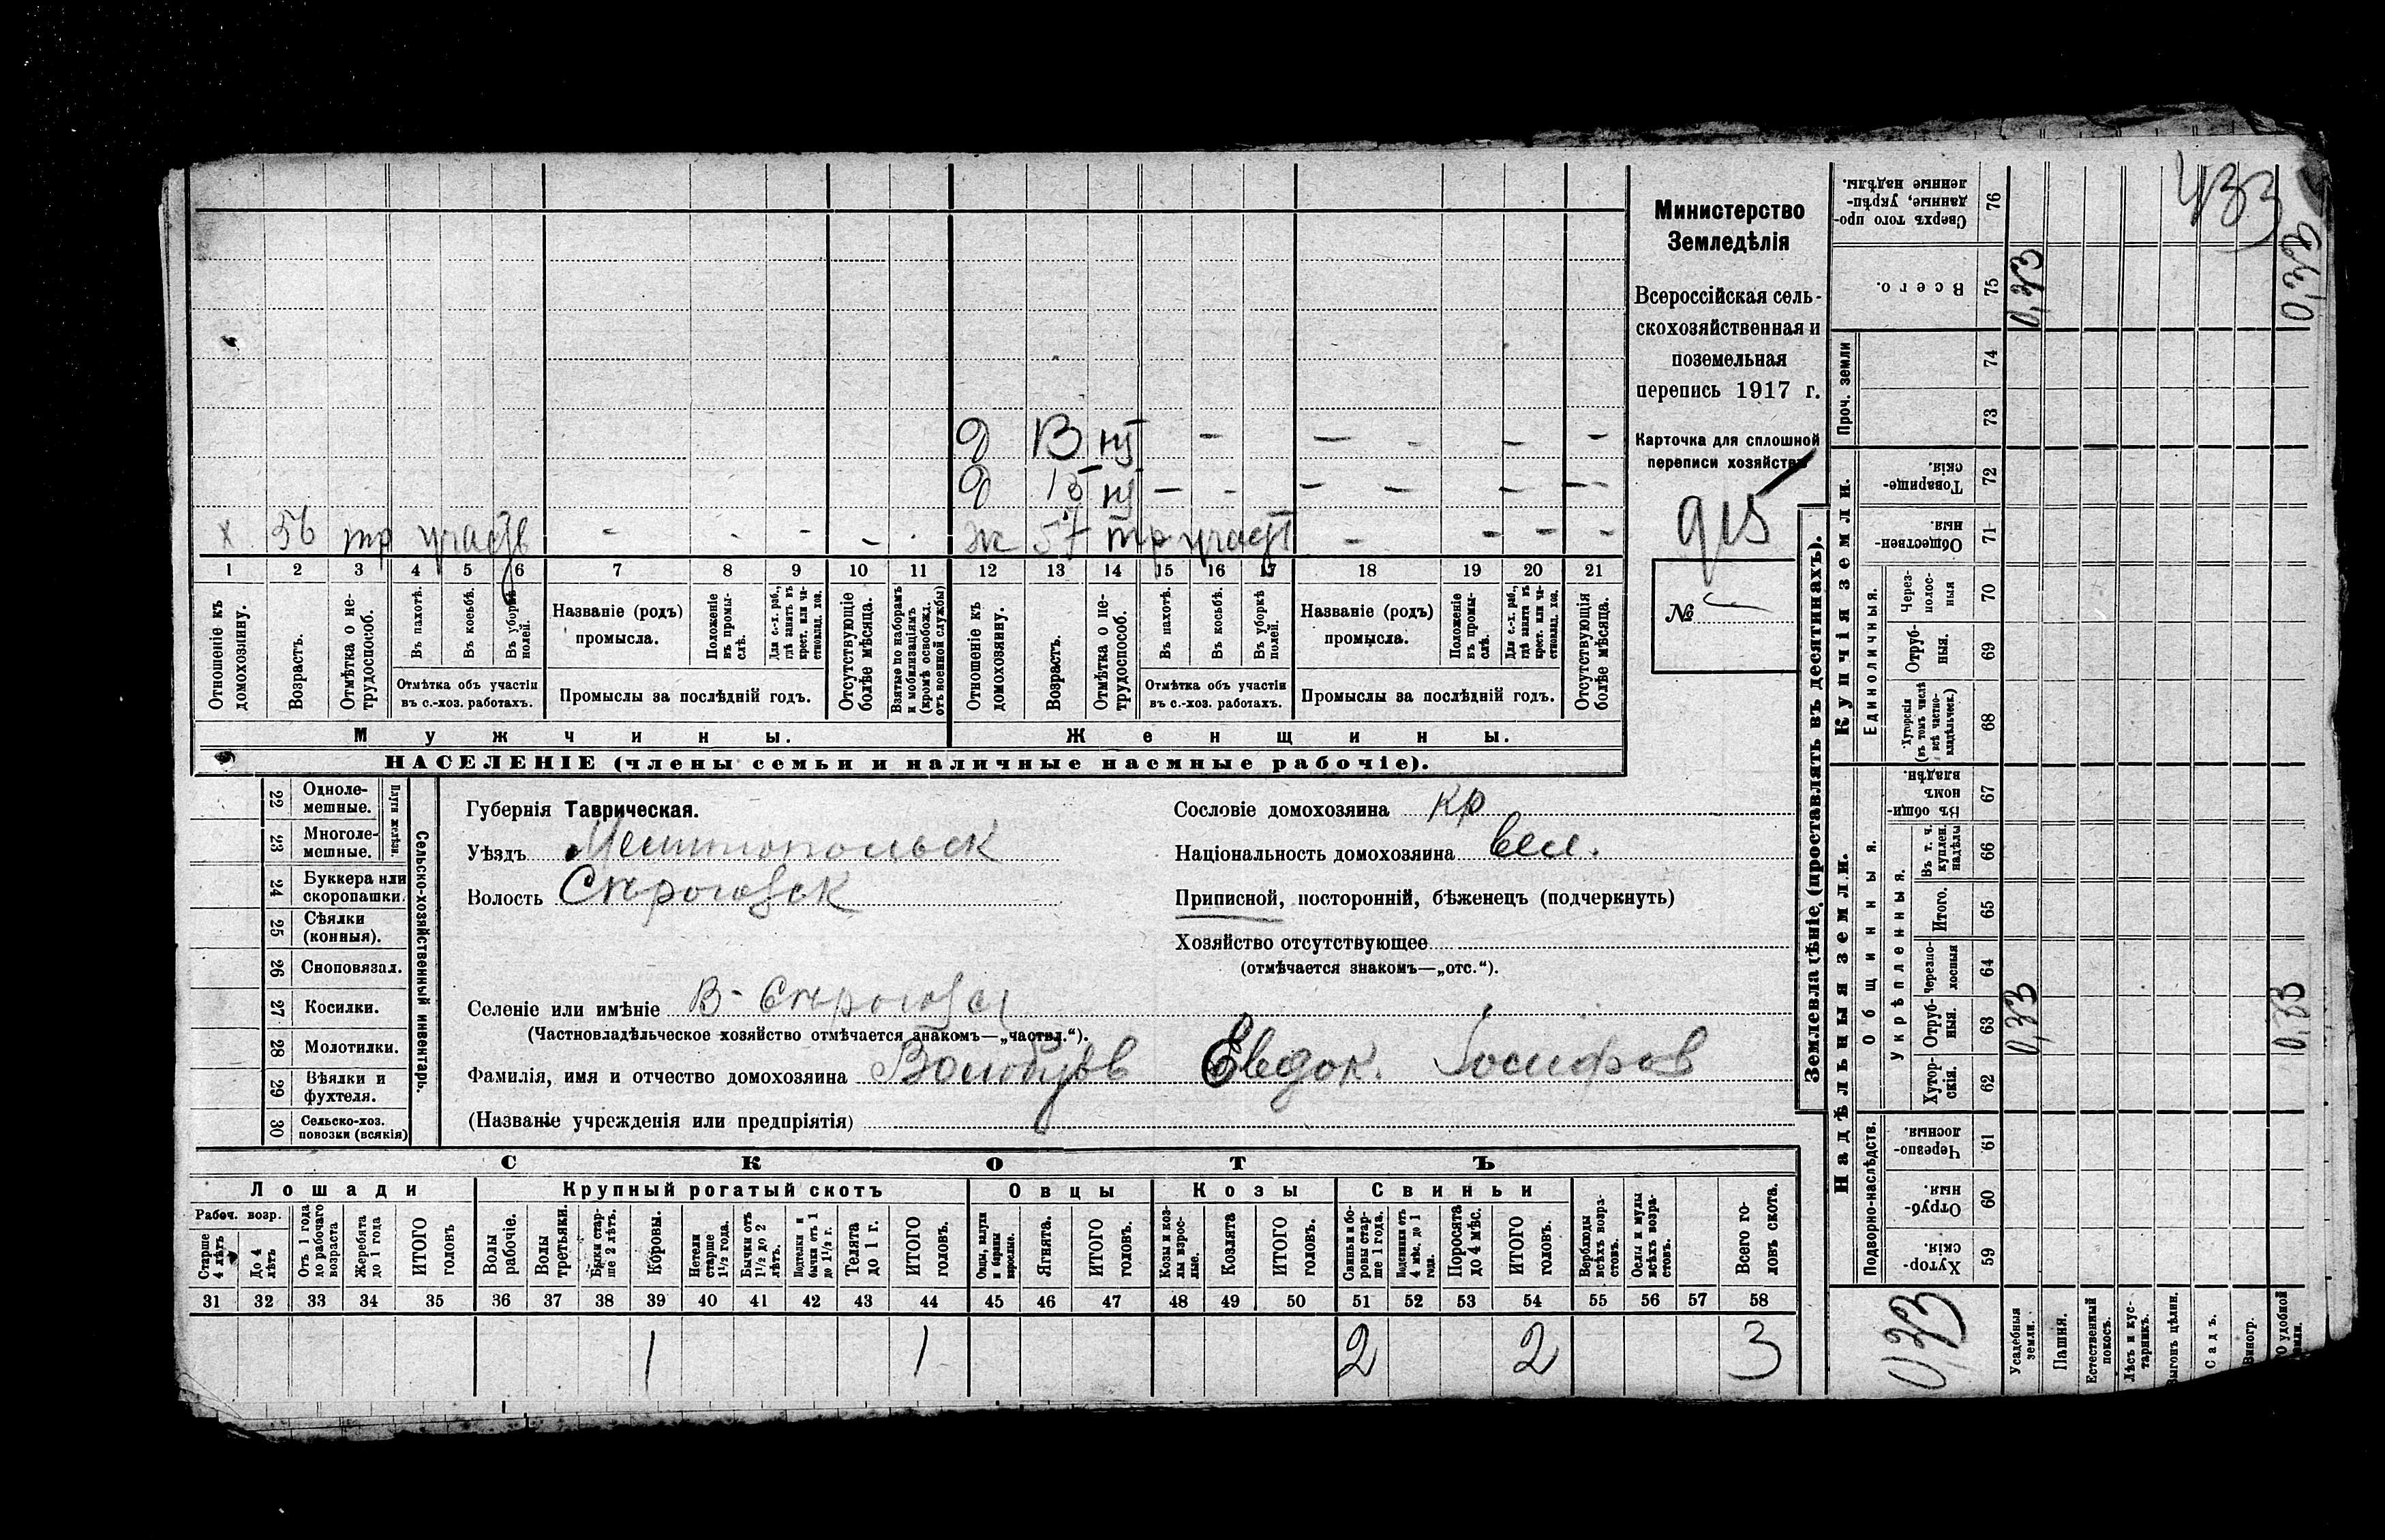 433
Министерство
Земледѣлія
Всероссійская сель-
скохозяйственная и
поземельная
перепись 1917 г.
Карточка для сплошной
переписи хозяйствъ
915
№
д 13 нт – – – – –
д 15 нт – – – – – –
х 56 тр участв - - - - -
ж 57 тр участ – – – –
1 2 3 4 5 6 7 8 9 10 11 12 13 14 15 16 17 18 19 20 21
Отношеніе къ домохозяину.
Возрастъ.
Отмѣтка о нетрудоспособ.
Въ пахотѣ.
Въ косьбѣ.
Въ уборкѣ полей.
Отмѣтка объ участіи
въ с.-хоз. работахъ.
Названіе (родъ)
промысла.
Положеніе въ промыслѣ.
Для с.-х. раб., гдѣ занятъ въ крест. или частновлад. хоз.
Промыслы за послѣдній годъ.
Отсутствующіе болѣе мѣсяца.
Взятые по наборамъ и мобилизаціямъ (кромѣ освобожд. отъ военной службы)
Отношеніе къ домохозяину.
Возрастъ.
Отмѣтка о нетрудоспособ.
Въ пахотѣ.
Въ косьбѣ.
Въ уборкѣ полей.
Отмѣтка объ участіи
въ с.-хоз. работахъ.
Названіе (родъ)
промысла.
Положеніе въ промыслѣ.
Для с.-х. раб., гдѣ занята въ крест. или частновлад. хоз.
Промыслы за послѣдній годъ.
Отсутствующія болѣе мѣсяца.
Мужчины. Женщины.
НАСЕЛЕНІЕ (члены семьи и наличные наемные рабочіе).
Сельско-хозяйственный инвентарь.
Плуги желѣзн.
22 Однолемешные.
23 Многолемешные.
24 Буккера или скоропашки.
25 Сѣялки (конныя).
26 Сноповязал.
27 Косилки.
28 Молотилки.
29 Вѣялки и фухтеля.
30 Сельско-хоз. повозки (всякія)
Губернія Таврическая.
Уѣздъ Мелитопольск
Волость
Селеніе или имѣніе
(Частновладѣльческое хозяйство отмѣчается знакомъ—„частвл.“).
Фамилія, имя и отчество домохозяина Волобуевъ Евдок. Іосифов
(Названіе учрежденія или предпріятія)
Сословіе домохозяина кр
Національность домохозяина вел.
Приписной, посторонній, бѣженецъ (подчеркнуть)
Хозяйство отсутствующее
(отмѣчается знакомъ—„отс.“).
СКОТЪ
Лошади Крупный рогатый скотъ Овцы Козы Свиньи
Рабоч. возр.
Старше 4 лѣтъ
До 4 лѣтъ
Отъ 1 года до рабочаго возраста
Жеребята до 1 года
ИТОГО головъ
Волы рабочіе.
Волы третьяки.
Быки старше 2 лѣтъ.
Коровы.
Нетели старше 1½ года.
Бычки отъ 1½ до 2 лѣтъ.
Подтелки и бычки отъ 1 до 1½ г.
Телята до 1 г.
ИТОГО головъ.
Овцы, валухи и бараны взрослые.
Ягнята.
ИТОГО головъ.
Козы и козлы взрослые.
Козлята
ИТОГО головъ.
Свиньи и боровы старше 1 года.
Подсвинки отъ 4 мѣс. до 1 года.
Поросята до 4 мѣс.
ИТОГО головъ.
Верблюды всѣхъ возрастовъ.
Ослы и мулы всѣхъ возрастовъ.
Всего головъ скота.
31 32 33 34 35 36 37 38 39 40 41 42 43 44 45 46 47 48 49 50 51 52 53 54 55 56 57 58
1 1 2 2 3
Землевладѣніе (проставлять въ десятинахъ).
Купчія земли.
Надѣльныя земли.
Сверхъ того проданные, укрѣпленные надѣлы. 76
Всего. 75 0,33 0,33
Проч. земли
74
73
Товарищескія. 72
Общественныя. 71
Единоличныя.
Черезполосныя 70
Отрубныя. 69
Хуторскія (въ томъ числѣ всѣ частновладѣльческ.) 68
Общинныя.
Въ общинномъ владѣн. 67
Укрѣпленныя.
Въ т. ч. куплен. надѣлы 66
Итого. 65
Черезполосныя 64
Отрубныя. 63 0,33 0,33
Хуторскія. 62
Подворно-наслѣдств.
Черезполосныя. 61
Отрубныя. 60
Хуторскія. 59
0,33
Усадебныя земли.
Пашня.
Естественный покосъ.
Лѣсъ и кустарникъ.
Выгонъ цѣлин.
Садъ.
Виногр.
О удобной земли.